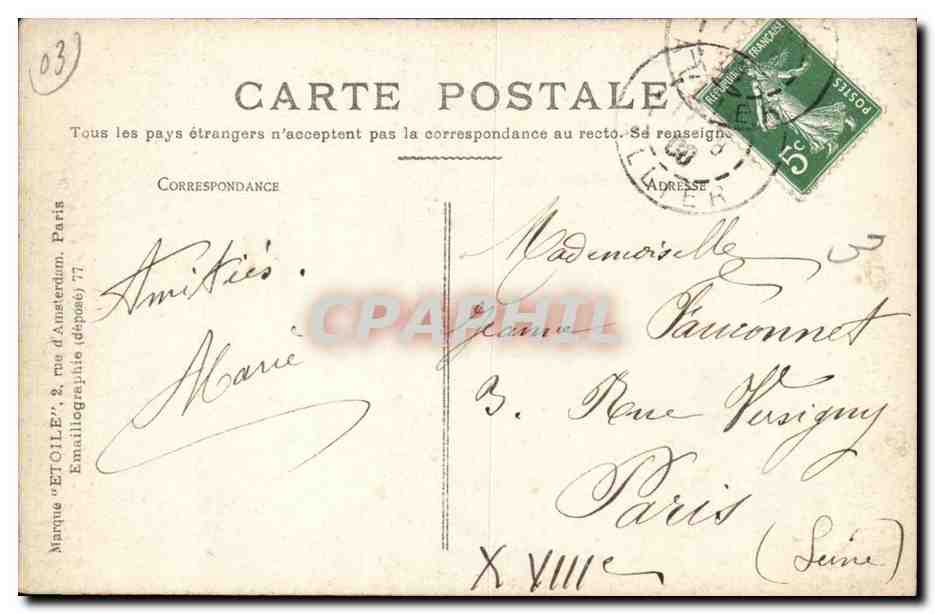 03
CARTE POSTALE
Tous les pays étrangers n'acceptent pas la correspondance au recto. Se renseigne
CORRESPONDANCE
ADRESSE
REPUBLIQUE FRANÇAISE
POSTES
5c
Amitiés.
Marie
Mademoiselle
Jeanne Fauconnet
3. Rue Versigny
Paris
(Seine)
XVIIIe
3
CPAPHIL
Marque "ETOILE", 2, rue d'Amsterdam. Paris
Emaillographie (déposé) 77